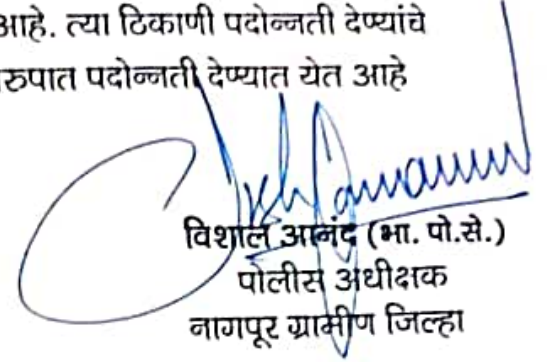 आहे. त्या ठिकाणी पदोन्नती देण्यांचे
रुपात पदोन्नती देण्यात येत आहे
विशाल आनंद (भा. पो.से.)
पोलीस अधीक्षक
नागपूर ग्रामीण जिल्हा